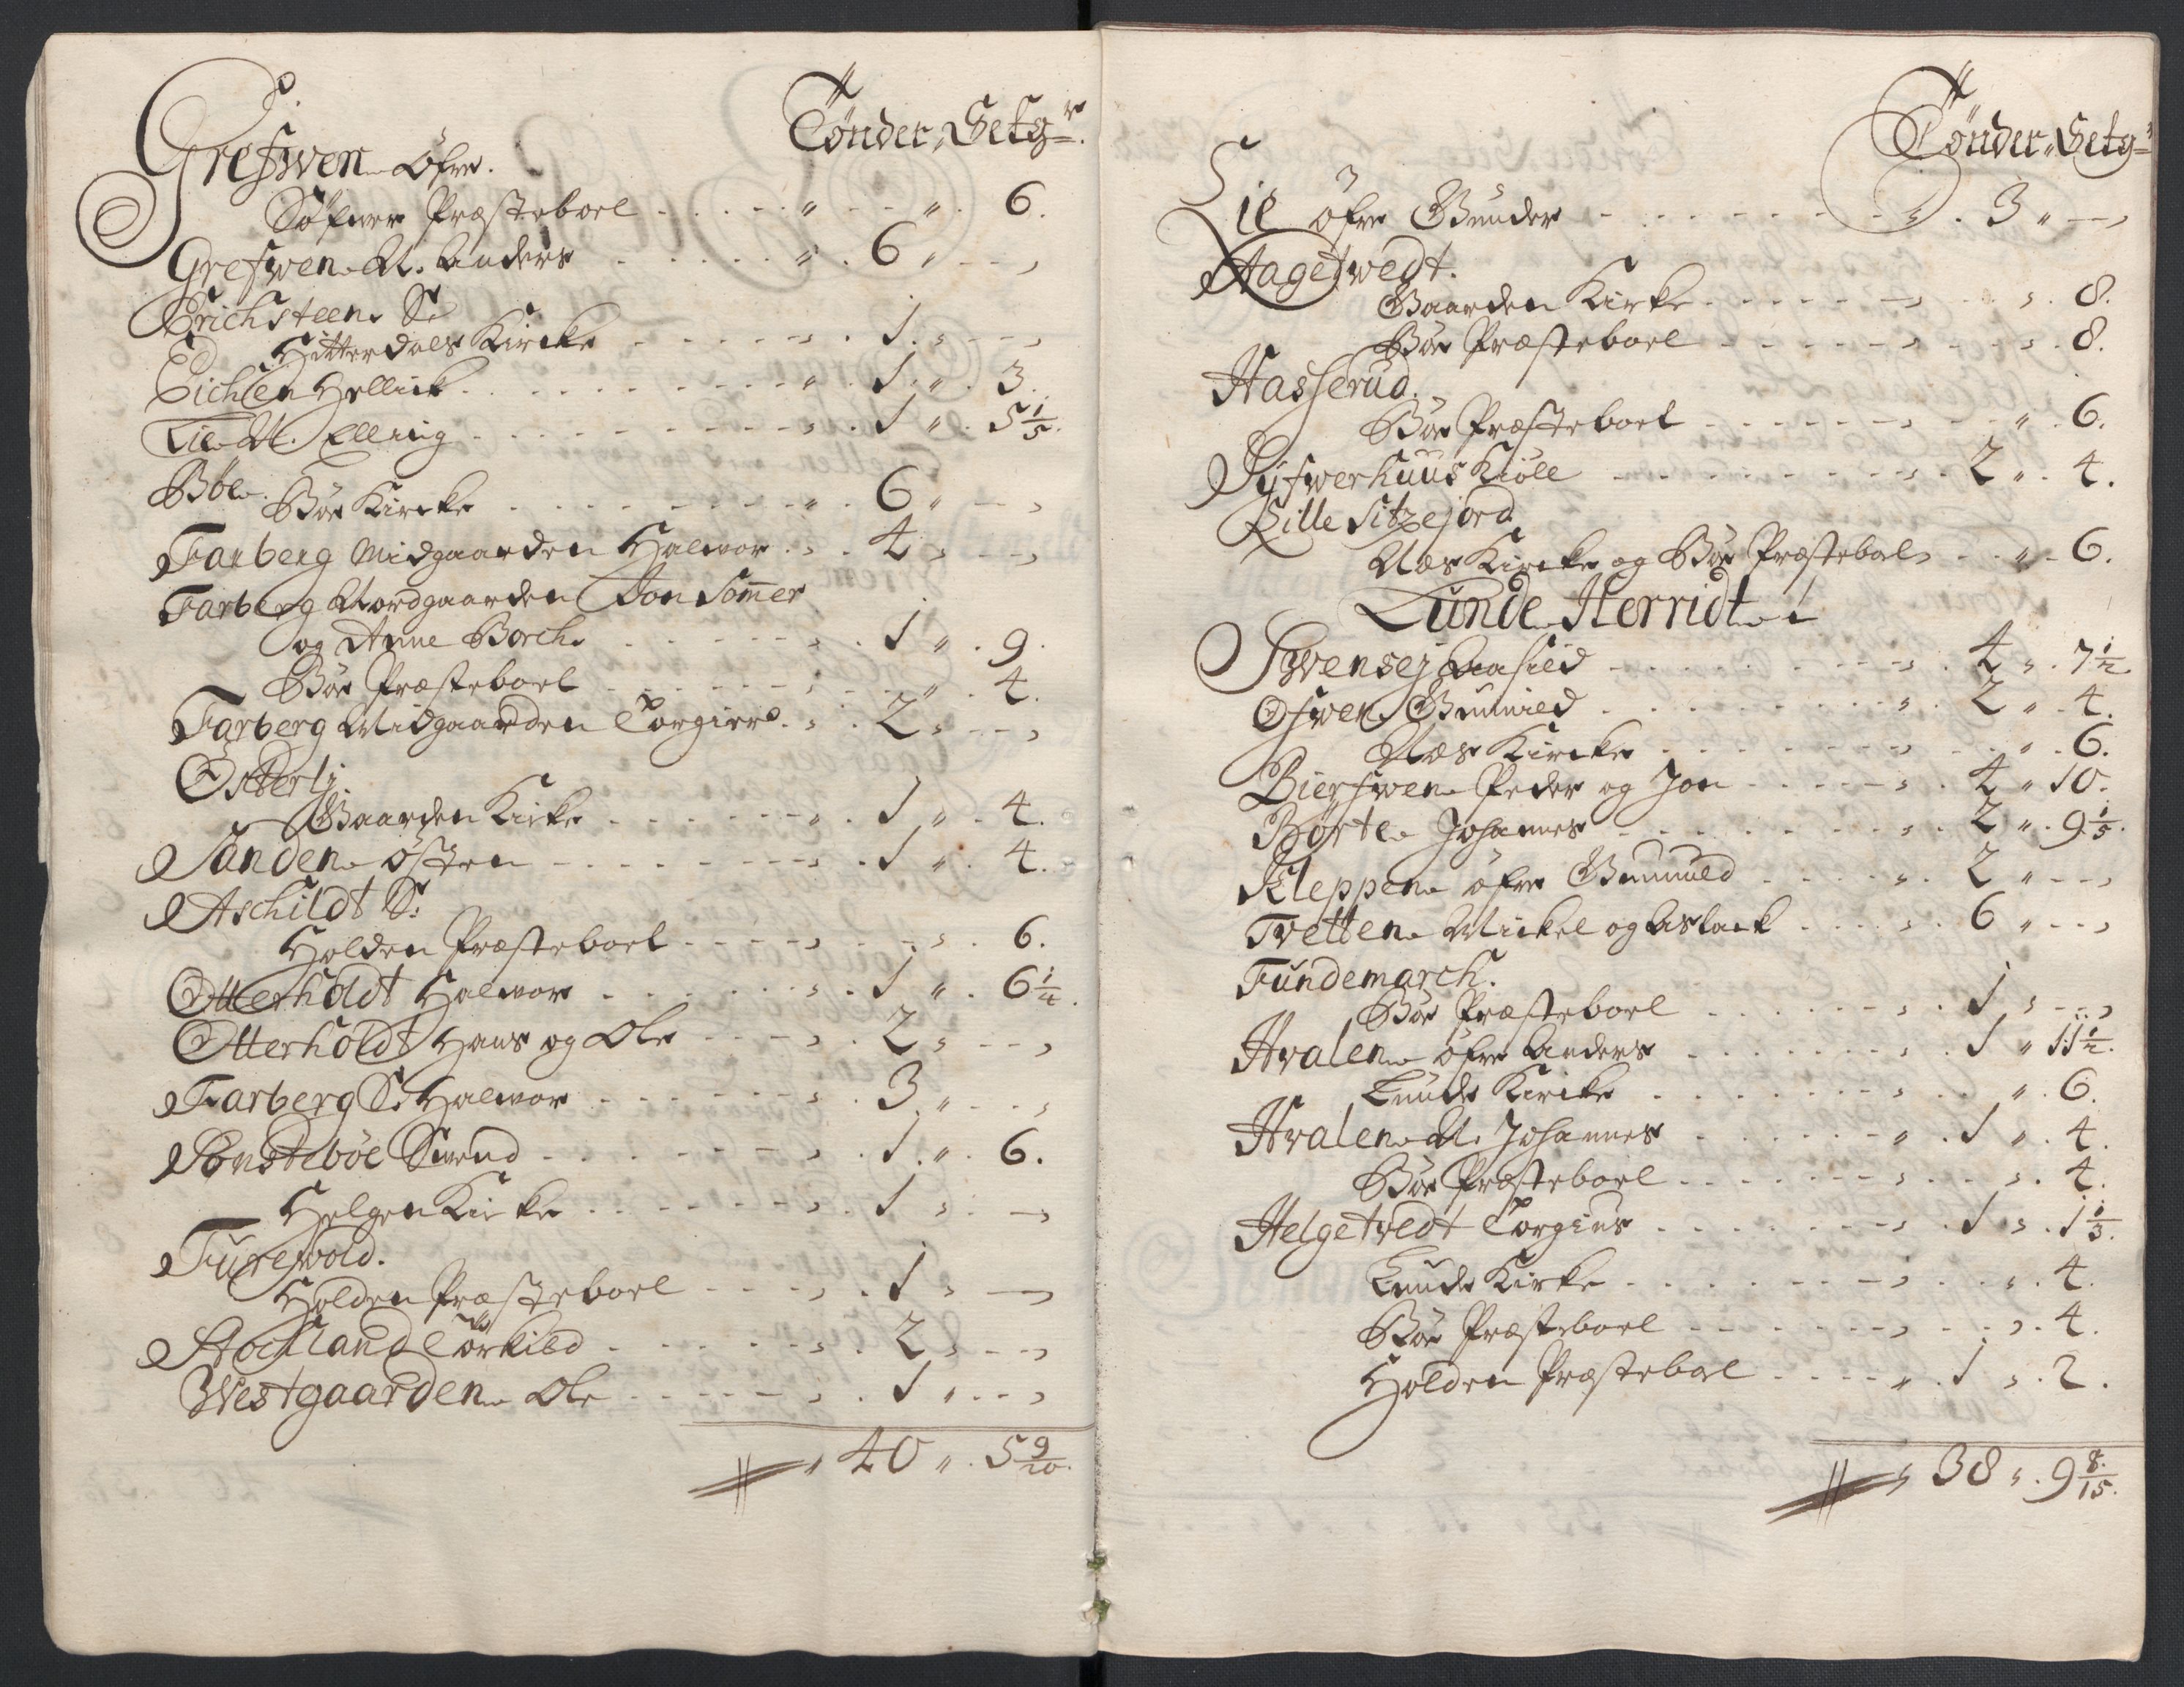 Tønder, Setg=r.
Grefwen øfre.
Søfwer Præsteboel - - - " - - ". 6.
Grefwen N. Anders - - - ". 6 " - - ,
Erichsteen S:
Hitterdals Kircke - - - , . 1. , - - ,
Eichlen Hellick - - - " . 1. " . 3.
Lie N. Elling - - - , . 1 " . 5 1/5.
Böe.
Böe Kircke - - - " . 6 " - - ,
Farberg Midgaarden Halvor . , . 4 , - - ,
Farberg Nordgaarden Jon Som̄er
og Anne Borch. - - - , . 1 " . 9.
Böe Præsteboel - - - , - - " . 4.
Farberg Midgaarden Torgier. , . 2 , - - ,
Østerli
Gaarden Kirke - - - " . 1 " . 4.
Sanden östen - - - , . 1 " . 4.
Aschildt S:
Holden Præsteboel - - - , - - , . 6.
Otterholdt Halvor - - - , . 1 " . 6 1/4.
Otterholdt Hans og Ole - - - , . 2 , - - ,
Farberg S: Halvor - - - , . 3 " - - ,
Sönsteböe Svend - - - , . 1. " . 6.
Helgen Kirke - - - , . 1 , . - ,
Furefvold.
Holden Præsteboel - - - , . 1 , - - ,
Stochland Törkild - - - , . 2 , - - ,
Westgaarden Ole - - - , . 1 " - - ,
" 40 " . 5 9/20.
Tønder, Setg=r
Lie öfre Gunder - - - , . 3 " - - ,
Hagetwedt.
Gaarden Kirke - - - , - - , . 8.
Böe Præsteboel - - - , - - , . 8.
Hasserud.
Böe Præsteboel - - - , - - " . 6.
Dyfwerhuus Kiöll - - - , . 2 " . 4.
Lille Sitzejord
Næs Kircke og Böe Præsteboel, - - " - 6.
Lunde Herridt
Swensej Aasild - - - , . 4 , . 7 1/2.
Ofwen Gunnild - - - " . 2 " . 4.
Næs Kircke - - - , - - " . 6.
Bierfwen Peder og Jon - - - , . 4 " 10.
Börte Johannes - - - , . 2 " . 9 1/5.
Kleppen öfre Gunnuld - - - " . 2 " - - ,
Tvetten Mickel og Aslack - - - , . 6 " - - ,
Fundemarch.
Böe Præsteboel - - - , . 1 , - - ,
Hvalen öfre Anders - - - , . 1 " 11 1/2.
Lunde Kircke - - - , - - " . 6.
Hvalen N. Johannes - - - " . 1 " . 4.
Böe Præsteboel - - - , - - , . 4.
Helgetvedt Torgius - - - , . 1 , . 1 1/3.
Lunde Kirke - - - , - - " . 4.
Böe Præsteboel - - - , - - , . 4.
Holden Præsteboel - - - " . 1 , . 2.
, 38 , . 9 8/15.